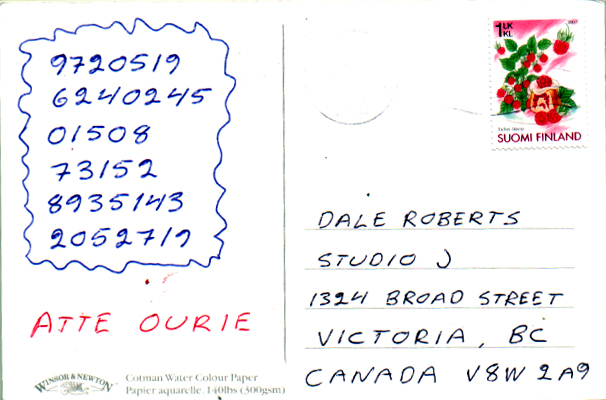 9720519
6240245
01508
73152
8935143
2052719
ATTE OURIE
WINSOR & NEWTON
Cotman Water Colour Paper
Papier aquarelle. 140lbs (300gsm)
1 LK
KL
2007
SUOMI FINLAND
DALE ROBERTS
STUDIO J
1324 BROAD STREET
VICTORIA, BC
CANADA V8W 2A9